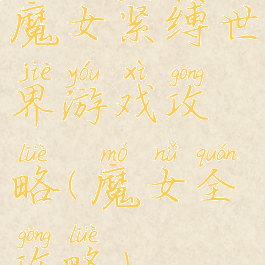 魔女紧缚世
jiè yóu xì gōng
界游戏攻
lüè mó nǚ quán
略(魔女全
gōng lüè
攻略)